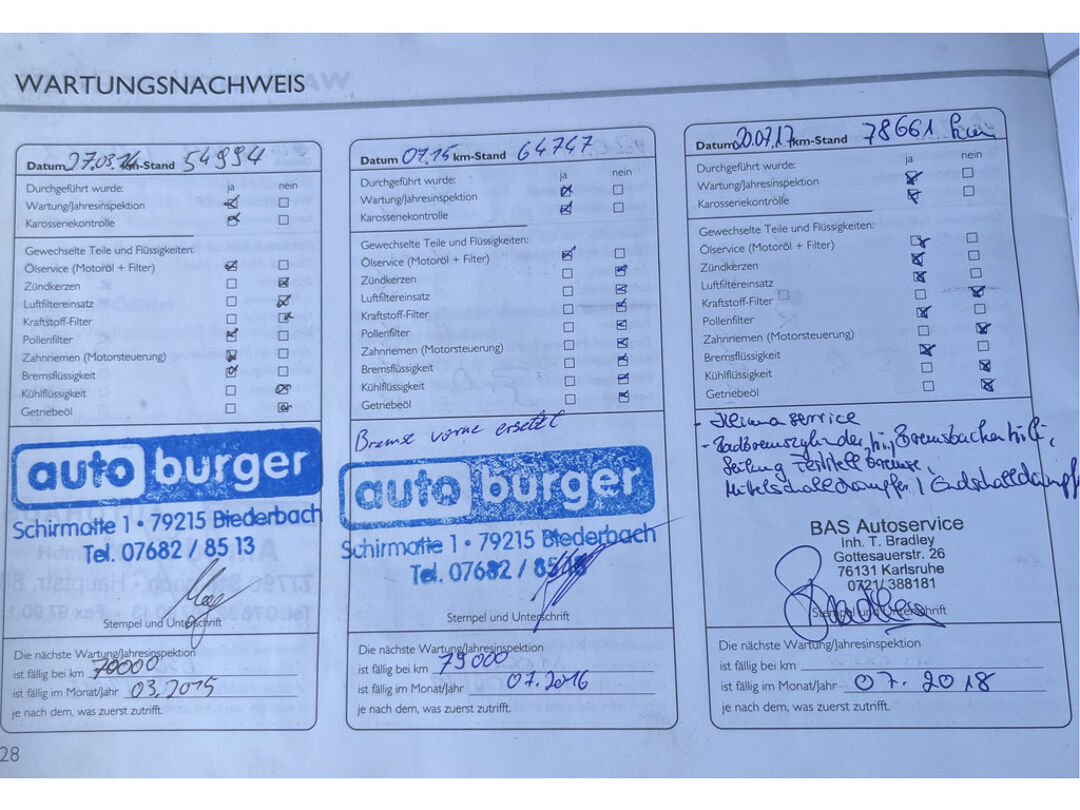 WARTUNGSNACHWEIS
Datum 27.03.14 km-Stand 54994
Durchgeführt wurde: ja nein
Wartung/Jahresinspektion
Karosseriekontrolle
Gewechselte Teile und Flüssigkeiten:
Ölservice (Motoröl + Filter)
Zündkerzen
Luftfiltereinsatz
Kraftstoff-Filter
Pollenfilter
Zahnriemen (Motorsteuerung)
Bremsflüssigkeit
Kühlflüssigkeit
Getriebeöl
auto burger
Schirmatte 1 • 79215 Biederbach
Tel. 07682 / 85 13
Stempel und Unterschrift
Die nächste Wartung/Jahresinspektion
ist fällig bei km 70000
ist fällig im Monat/Jahr 03.2015
je nach dem, was zuerst zutrifft.
28
Datum 07.15 km-Stand 64747
Durchgeführt wurde: ja nein
Wartung/Jahresinspektion
Karosseriekontrolle
Gewechselte Teile und Flüssigkeiten:
Ölservice (Motoröl + Filter)
Zündkerzen
Luftfiltereinsatz
Kraftstoff-Filter
Pollenfilter
Zahnriemen (Motorsteuerung)
Bremsflüssigkeit
Kühlflüssigkeit
Getriebeöl
Bremse vorne ersetzt
auto burger
Schirmatte 1 • 79215 Biederbach
Tel. 07682 / 85 13
Stempel und Unterschrift
Die nächste Wartung/Jahresinspektion
ist fällig bei km 79000
ist fällig im Monat/Jahr 07.2016
je nach dem, was zuerst zutrifft.
Datum 20.07.17 km-Stand 78661
Durchgeführt wurde: ja nein
Wartung/Jahresinspektion
Karosseriekontrolle
Gewechselte Teile und Flüssigkeiten:
Ölservice (Motoröl + Filter)
Zündkerzen
Luftfiltereinsatz
Kraftstoff-Filter
Pollenfilter
Zahnriemen (Motorsteuerung)
Bremsflüssigkeit
Kühlflüssigkeit
Getriebeöl
- Klimaservice
- Radbremszylinder hi., Bremsbacken hi.,
Feststellbremse,
Mittelschalldämpfer / Endschalldämpf
BAS Autoservice
Inh. T. Bradley
Gottesauerstr. 26
76131 Karlsruhe
0721/ 388181
Stempel und Unterschrift
Die nächste Wartung/Jahresinspektion
ist fällig bei km
ist fällig im Monat/Jahr 07. 2018
je nach dem, was zuerst zutrifft.